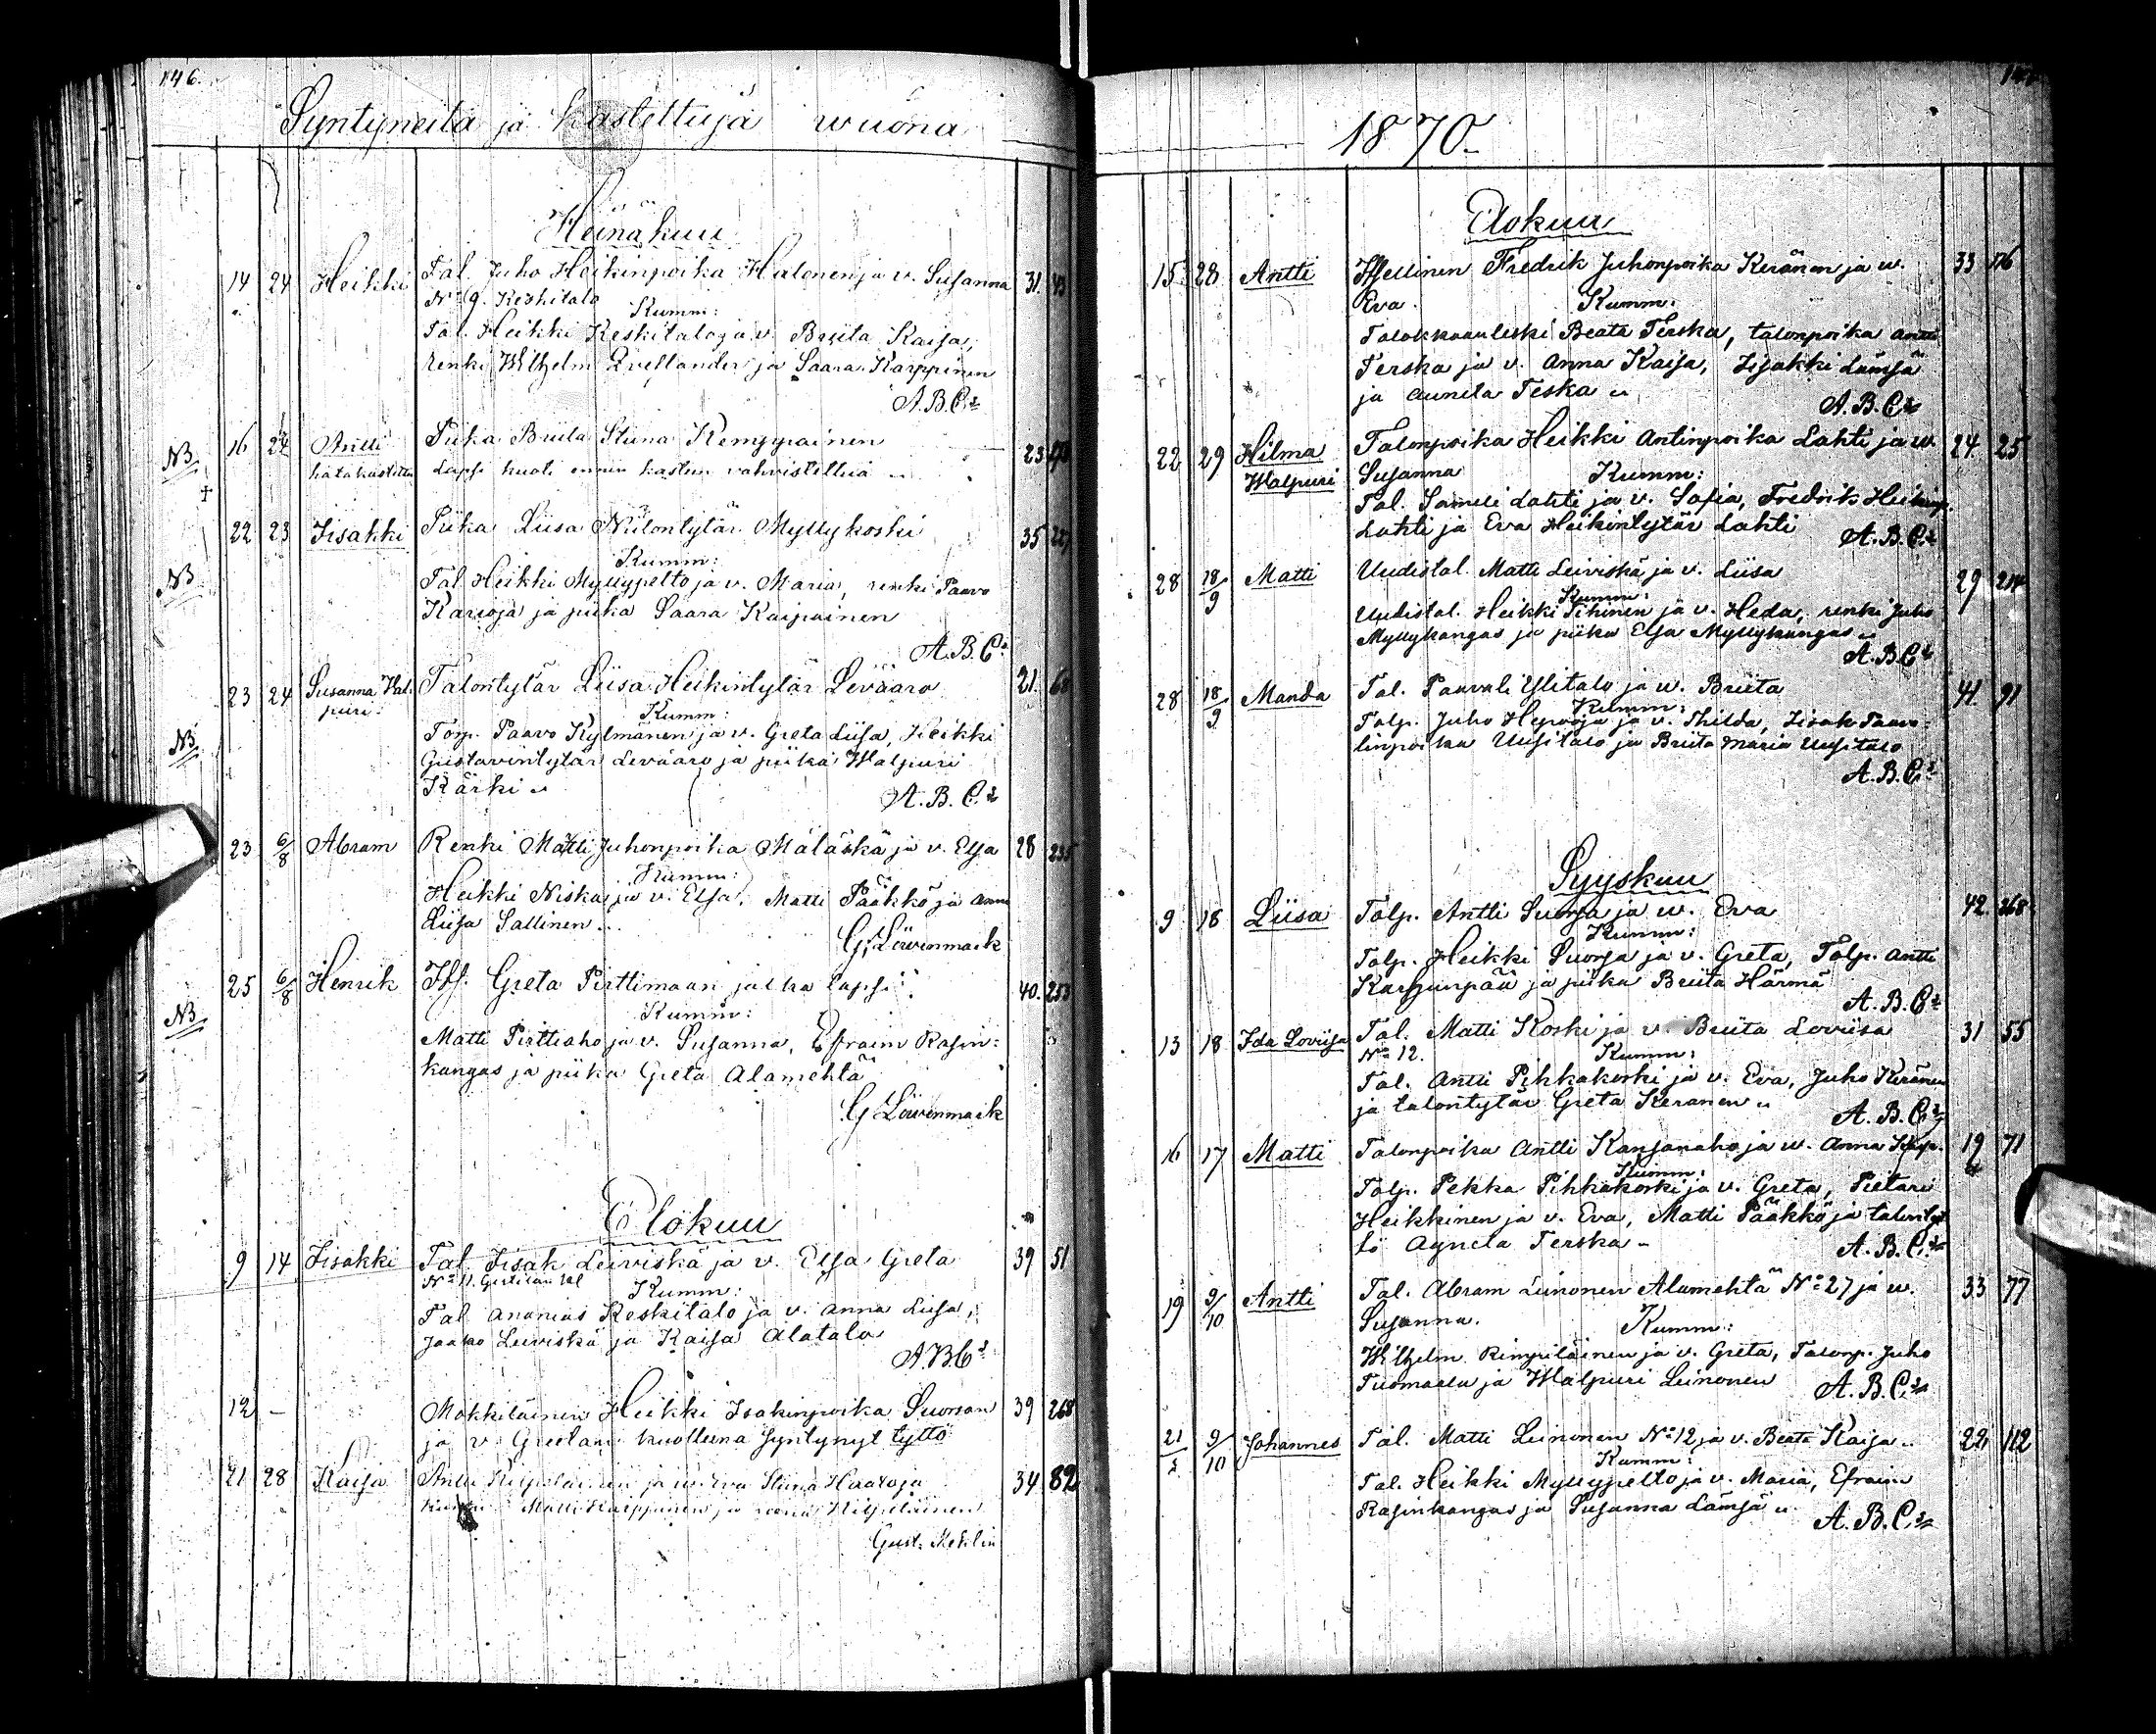 146.
Syntyneitä ja kastettuja wuona
Heinäkuu
14 24 Heikki Tal. Juho Heikinpoika Halonen ja v. Susanna 31. 43
No 9. Keskitalo
Kumm:
Tal. Heikki Keskitalo ja v. Briita Kaisa,
renki Wilhelm ja Saara Karppinen
A. B. C:s
NB 16 24 Antti Piika Briita Stiina Kemppainen 23
hätäkastettu Lapsi kuoli ennen kasteen vahvistettua
22 23 Iisakki Piika Liisa Niilontytär Myllykoski 35
NB
Kumm:
Tal. Heikki Myllypelto ja v. Maria, renki Paavo
Karioja ja piika Saara Kaipainen
A. B. C:s
23 24 Susanna Wal- Talontytär Liisa Heikintytär Leväaro 21.
puri.
Kumm:
NB
Torp. Paavo Kylmänen ja v. Greta Liisa, Heikki
Gustavintytär Leväaro ja piika Walpuri
Kärki
A. B. C:s
23 6/8 Abram Renki Matti Juhonpoika Määskä ja v. Elsa 28 235
Kumm:
Heikki Niska ja v. Elsa, Matti Pääkkö ja Anna
Liisa Sallinen
G. Löwenmark
25 6/8 Henrik Itf. Greta Pirttimaan lapsi 40. 253
NB
Kumm:
Matti Pirttiaho ja v. Susanna, Efraim Rasin-
kangas ja piika Greta Alamehtä
G Löwenmark
Elokuu
9 14 Iisakki Tal. Iisak Leiviskä ja v. Elsa Greta 39 51
No 11.
Kumm:
Tal Ananias Keskitalo ja v. Anna Liisa,
Jaako Leiviskä ja Kaisa Alatalo
A. B C:s
12 – Mökkiläinen Heikki Isakinpoika Suorsan 39 268
ja v. Greetan kuolleena syntynyt tyttö
21 28 Kaisa Antti Kilpeläinen ja w. Eva Stiina Haaraoja 34 82
Matti Karppinen ja Kilpeläinen
Gust. Keklin
1870
Elokuu
15 28 Antti Itsellinen Fredrik Juhonpoika Keränen ja w. 33 176
Eva.
Kumm:
Talokkaanleski Beata Terska, talonpoika Antti
Terska ja v. Anna Kaisa, Iisakki Lämsä
ja Auneta Teska
A. B. C:s
22 29 Hilma Talonpoika Heikki Antinpoika Lahti ja w. 24 25
Walpuri Susanna
Kumm:
Tal. Sameli Lahti ja v. Sofia, Fredrik Heikinp.
Lahti ja Eva Heikintytär Lahti
A. B. C:s
28 18/9 Matti Uudistal. Matti Leiviskä ja v. Liisa 29 214
Kumm:
Uudistal. Heikki Tihinen ja v. Heda, renki Juho
Myllykangas ja piika Elsa Myllykangas
A. B. C:s
28 18/9 Manda Tal. Paavali Ylitalo ja w. Briita 41. 91
Kumm:
Talp. Juho Hepooja ja v. Thilda, Iisak Paava-
linpoika Uusitalo ja Briita Maria Uusitalo
A. B. C:s
Syyskuu
9 18 Liisa Talp. Antti Suorsa ja w. Eva 42. 268
Kumm:
Talp. Heikki Suorsa ja v. Greta, Talp. Antti
Karsinpää ja piika Briita Härmä
A. B. C:s
13 18 Ida Loviisa Tal. Matti Koski ja v. Briita Loviisa 31 55
No 12.
Kumm:
Tal. Antti Pihkakoski ja v. Eva, Juho Keränen
ja talontytär Greta Keränen
A. B. C:s
16 17 Matti Talonpoika Antti Kansanaho ja w. Anna Kaisa. 19 71
Kumm:
Talp. Pekka Pihkakoski ja v. Greta, Pietari
Heikkinen ja v. Eva, Matti Pääkkö ja talontyt-
tö Agneta Terska
A. B. C:s
19 9/10 Antti Tal. Abram Leinonen Alamehtä No 27 ja w. 33 77
Susanna.
Kumm:
Wilhelm Rimpiläinen ja v. Greta, Talonp. Juho
Tuomaala ja Walpuri Leinonen
A. B. C:s
21 9/10 Johannes Tal. Matti Leinonen No 12 ja v. Beata Kaisa 22 112
Kumm:
Tal. Heikki Myllypelto ja v. Maria, Efraim
Rasinkangas ja Susanna Lämsä
A. B. C:s